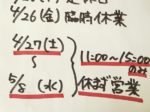 4/26(金) 臨時休業
4/27(土)
〜
5/8 (水)
11:00〜15:00
のみ
休まず営業